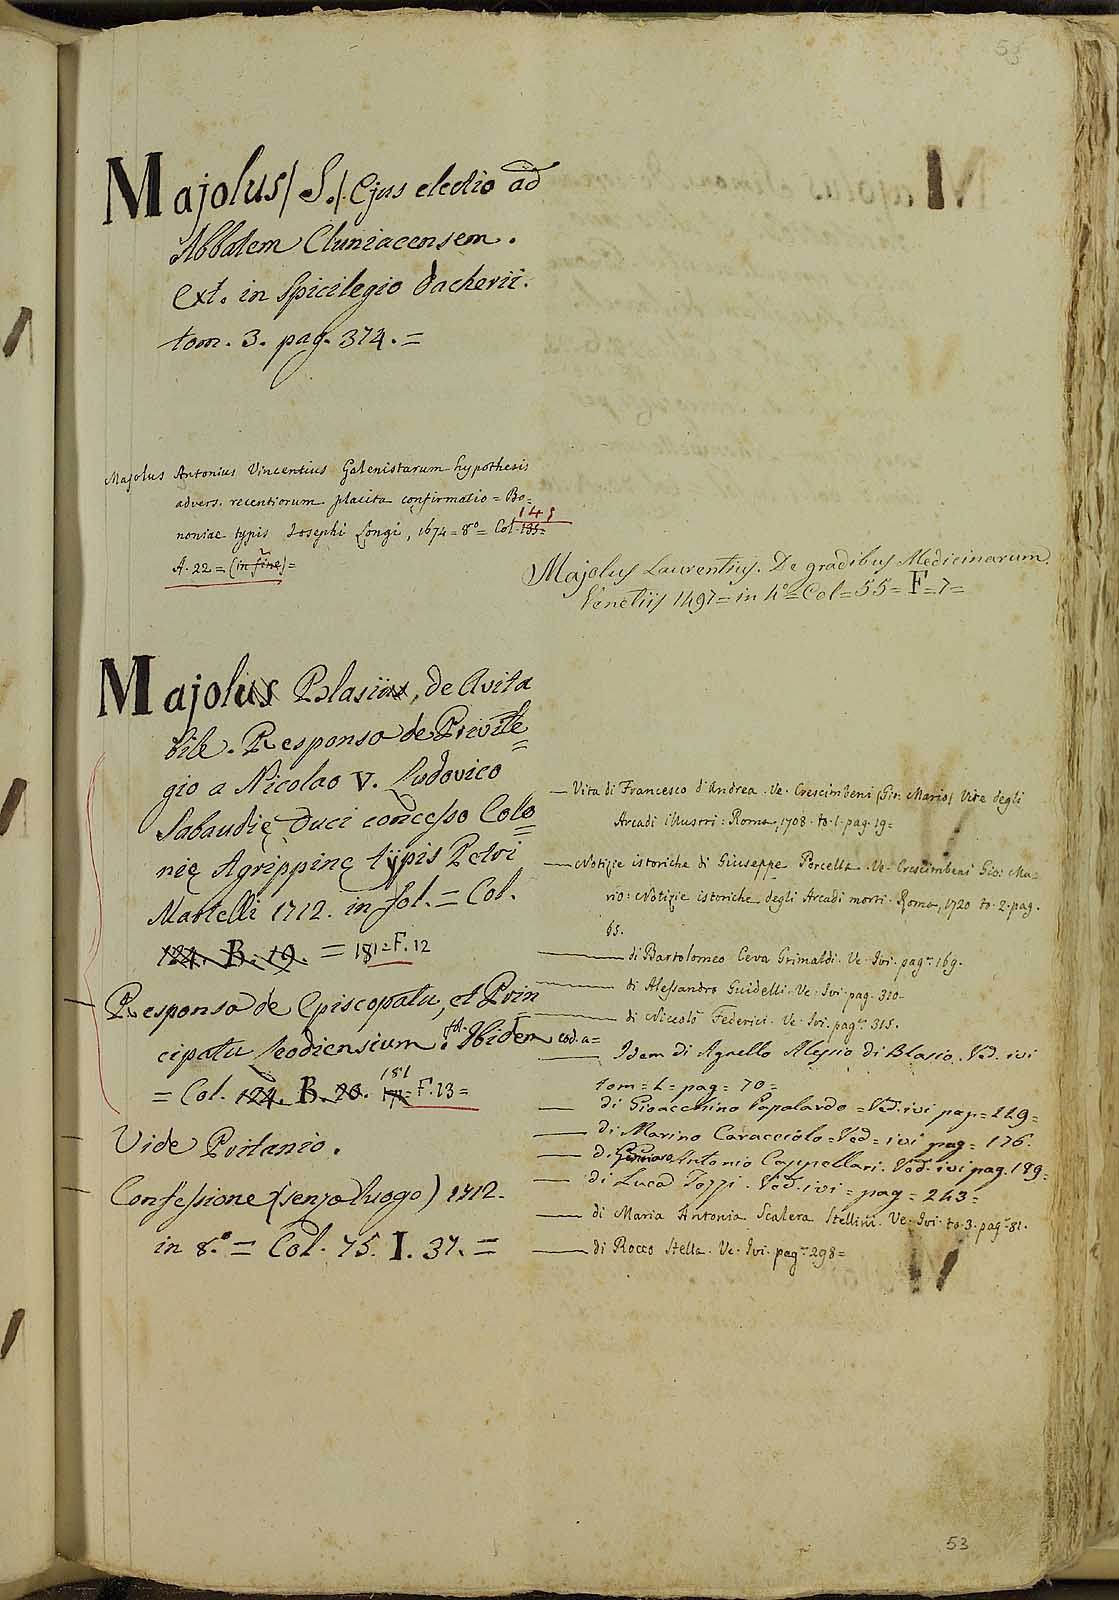 53
Majolus / S. / Ejus electio ad
Abbatem Cluniacensem.
ext. in Spicilegio Dacherii.
tom. 3. pag. 374. =
Majolus Antonius Vincentius Galenistarum hypothesis
advers. recentiorum placita confirmatio = Bo=
noniae typis Josephi Longi, 1674 = 8.º = Col. 135=
149
A. 22 = (in fine) =
Majolus Laurentius. De gradibus Medicinarum.
Venetiis 1497 = in 4.º = Col = 55 = F = 7 =
Majolus Blasius, de Avita
bile. Responso de Privile=
gio a Nicolao V. Ludovico
Sabaudię Duci concesso Colo=
nię Agrippinę typis Petri
Martelli 1712. in fol. = Col.
124. B. 19. = 181 = F. 12
Responso de Episcopatu, et Prin
cipatu Leodiensium. fol. Ibidem eod. a =
= Col. 124. B. 20. 171 = F. 13 =
181
Vide Poitanio.
Confessione (senza luogo) 1712.
in 8.º = Col. 75. I. 37. =
— Vita di Francesco d'Andrea. Ve. Crescimbeni (Gio. Mario) Vite degli
Arcadi illustri: Roma, 1708. to. 1. pag. 19=
— Notizie istoriche di Giuseppe Porcella. Ve. Crescimbeni Gio: Ma=
rio: Notizie istoriche degli Arcadi morti. Roma, 1720 to. 2. pag.
65.
— di Bartolomeo Ceva Grimaldi. Ve. Ivi. pag. 169.
— di Alessandro Guidelli. Ve. Ivi. pag. 310.
— di Niccolò Federici. Ve. Ivi. pag. 315.
— Idem di Agnello Alessio di Blasio. Ved. ivi
tom = 1 = pag = 70 =
— di Gioacchino Papalardo = Ved. ivi pag = 119 =
— di Marino Caracciolo = Ved = ivi pag = 176.
— di Gennaro Antonio Cappellari. Ved. ivi pag. 189 =
— di Luca Tozzi. Ved. ivi = pag = 243 =
— di Maria Antonia Scalera Stellini. Ve. Ivi. to. 3. pag. 81.
— di Rocco Stella. Ve. Ivi. pag. 298 =
53